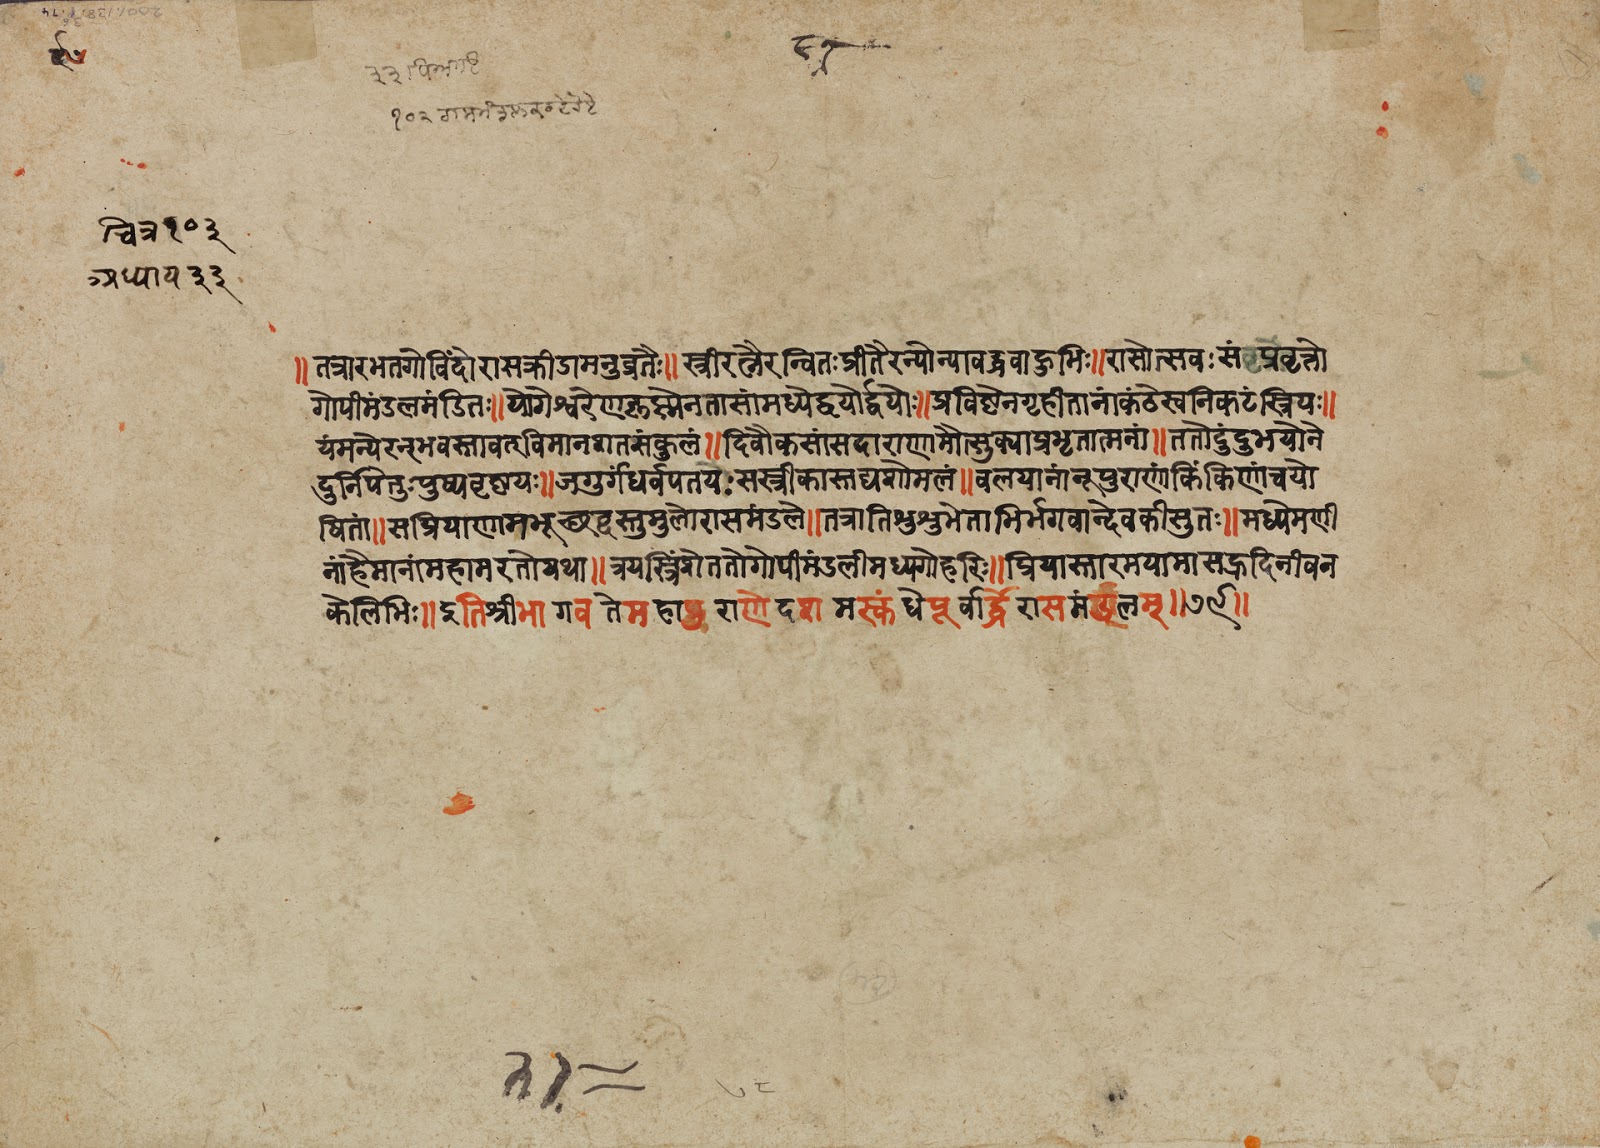 चित्र १०३
अध्याय ३३
॥ तत्रारभतगोविंदोरासक्रीडामनुव्रतैः॥ स्त्रीरत्नैरन्वितःप्रीतैरन्योन्यावद्धवाहुभिः॥रासोत्सवः संप्रवृत्तो
गोपीमंडलमंडितः॥योगेश्वरेणकृष्णेनतासांमध्येद्वयोर्द्वयोः॥प्रविष्टेनगृहीतानांकंठेस्वनिकटंस्त्रियः॥
यंमन्येरन्नभवस्तावत्विमानशतसंकुलं॥दिवौकसांसदाराणामौत्सुक्याप्रभृतात्मनां॥ततोदुंदुभयोने
दुर्निपेतुःपुष्पवृष्टयः॥जगुर्गंधर्वपतयः सस्त्रीकास्तद्यशोमलं॥वलयानांनूपुराणांकिंकिणांचयो
षितां॥सप्रियाणामभूच्छब्दस्तुमुलोरासमंडले॥तत्रातिशुशुभेताभिर्भगवान्देवकीसुतः॥मध्येमणी
नांहैमानांमहामरतोयथा॥त्रयस्त्रिंशेततोगोपीमंडलीमध्यगोहरिः॥प्रियास्तारमयामासह्रदिनीवन
केलिभिः॥इतिश्रीभागवतेमहापुराणेदशमस्कंधेपूर्वार्द्धेरासमंडलम्॥७९॥